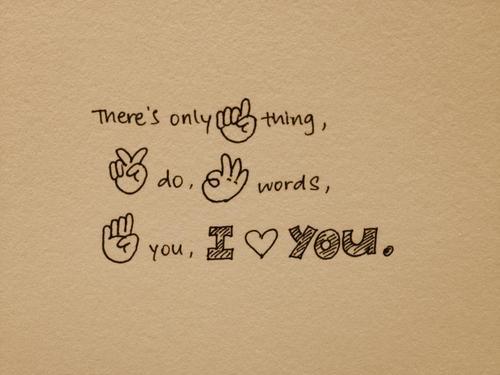 There's only ☝ thing,
✌ do, 👌 words,
you, I ♡ you.